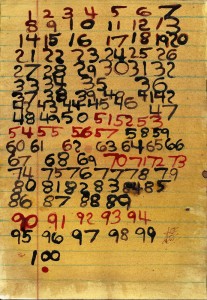 2 3 4 5 6 7
8 9 10 11 12 13
14 15 16 17 18 19 20
21 22 23 24 25 26
27 28 29 30 31 32
33 34 35 36
37 38 39
40 41 42 43 44 45 46 47
48 49 50 51 52 53
54 55 56 57 58 59
60 61 62 63 64 65 66
67 68 69 70 71 72 73
74 75 76 77 78 79
80 81 82 83 84 85
86 87 88 89
90 91 92 93 94
95 96 97 98 99
100